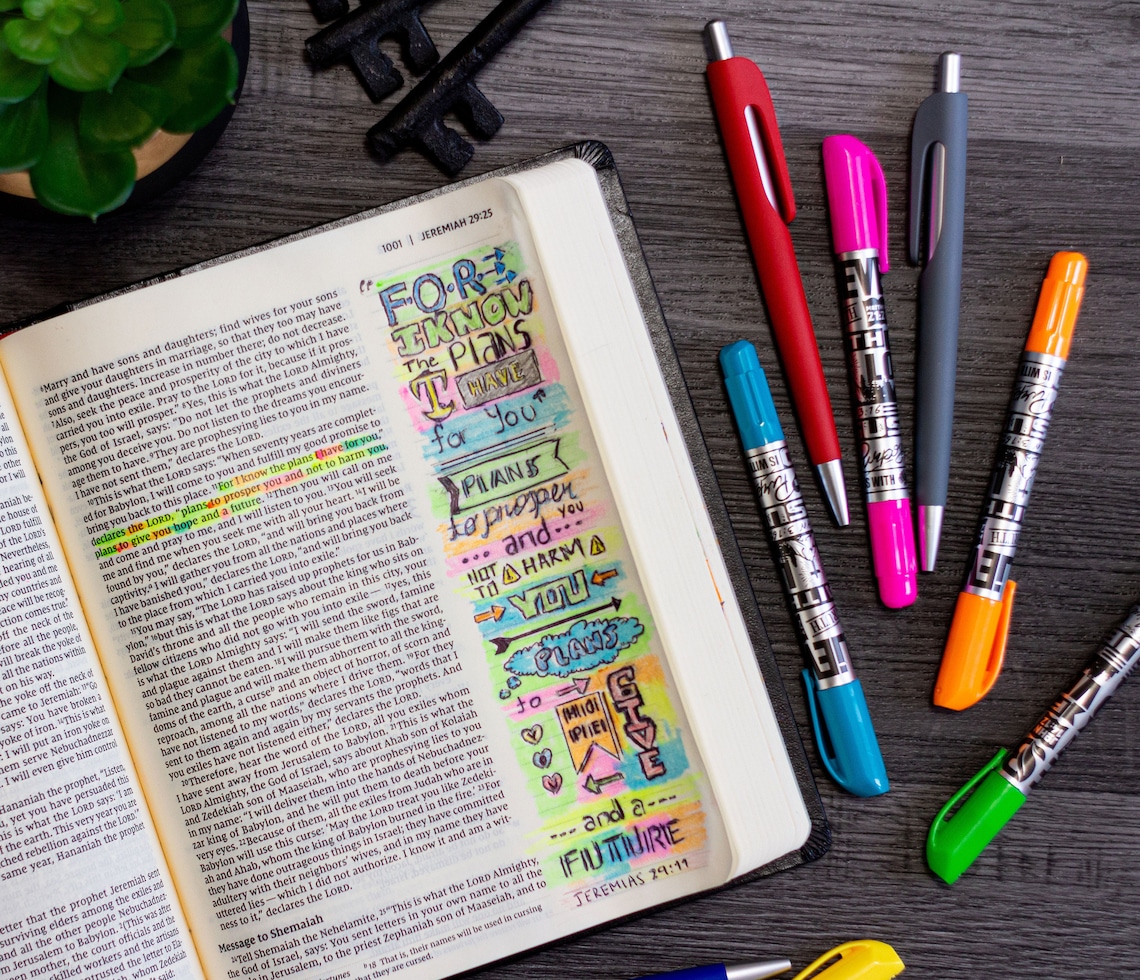 house of
LORD fulfill
Nevertheless,
peace will be recog
ction comes true."
off the neck of
fore all the people,
ill break the yoke of
all the nations within
t on his way.
he yoke off the neck of
came to Jeremiah: "Go
says: You have broken a
e of iron. This is what
I will put an iron yoke on
em serve Nebuchadnezzar
I will even give him control
Hananiah the prophet, "Listen,
, yet you have persuaded this
this is what the LORD says: 'I am
the earth. This very year you are
ched rebellion against the LORD.'"
same year, Hananiah the prophet
etter that the prophet Jeremiah sent
surviving elders among the exiles and
and all the other people Nebuchadnez-
n Jerusalem to Babylon. 2(This was after
mother, the court officials and the
the skilled workers and the artisans
1001 | JEREMIAH 29:25
6Marry and have sons and daughters; find wives for your sons
and give your daughters in marriage, so that they too may have
sons and daughters. Increase in number there; do not decrease.
7Also, seek the peace and prosperity of the city to which I have
carried you into exile. Pray to the LORD for it, because if it pros-
pers, you too will prosper." 8Yes, this is what the LORD Almighty,
the God of Israel, says: "Do not let the prophets and diviners
among you deceive you. Do not listen to the dreams you encour-
age them to have. 9They are prophesying lies to you in my name.
I have not sent them," declares the LORD.
10This is what the LORD says: "When seventy years are complet-
ed for Babylon, I will come to you and fulfill my good promise to
bring you back to this place. 11For I know the plans I have for you,"
declares the LORD, "plans to prosper you and not to harm you,
plans to give you hope and a future. 12Then you will call on me
and come and pray to me, and I will listen to you. 13You will seek
me and find me when you seek me with all your heart. 14I will be
found by you," declares the LORD, "and will bring you back from
captivity. I will gather you from all the nations and places where
I have banished you," declares the LORD, "and will bring you back
to the place from which I carried you into exile."
15You may say, "The LORD has raised up prophets for us in Bab-
ylon," 16but this is what the LORD says about the king who sits on
David's throne and all the people who remain in this city, your
fellow citizens who did not go with you into exile— 17yes, this
is what the LORD Almighty says: "I will send the sword, famine
and plague against them and I will make them like figs that are
so bad they cannot be eaten. 18I will pursue them with the sword,
famine and plague and will make them abhorrent to all the king-
doms of the earth, a curse and an object of horror, of scorn and
reproach, among all the nations where I drive them. 19For they
have not listened to my words," declares the LORD, "words that I
sent to them again and again by my servants the prophets. And
you exiles have not listened either," declares the LORD.
20Therefore, hear the word of the LORD, all you exiles whom
I have sent away from Jerusalem to Babylon. 21This is what the
LORD Almighty, the God of Israel, says about Ahab son of Kolaiah
and Zedekiah son of Maaseiah, who are prophesying lies to you
in my name: "I will deliver them into the hands of Nebuchadnez-
zar king of Babylon, and he will put them to death before your
very eyes. 22Because of them, all the exiles from Judah who are in
Babylon will use this curse: 'May the LORD treat you like Zedeki-
ah and Ahab, whom the king of Babylon burned in the fire.' 23For
they have done outrageous things in Israel; they have committed
adultery with their neighbors' wives, and in my name they have
uttered lies—which I did not authorize. I know it and am a wit-
ness to it," declares the LORD.
Message to Shemaiah
24Tell Shemaiah the Nehelamite, 25"This is what the LORD Almighty,
the God of Israel, says: You sent letters in your own name to all the
in Jerusalem, to the priest Zephaniah son of Maaseiah, and to
18 That is, their names will be used in cursing
that they are cursed.
"FOR
I KNOW
The PLANS
I HAVE
for You
PLANS
to prosper
YOU
... and ...
NOT TO HARM
YOU
PLANS
to
GIVE
--- and a ---
FUTURE
JEREMIAS 29:11